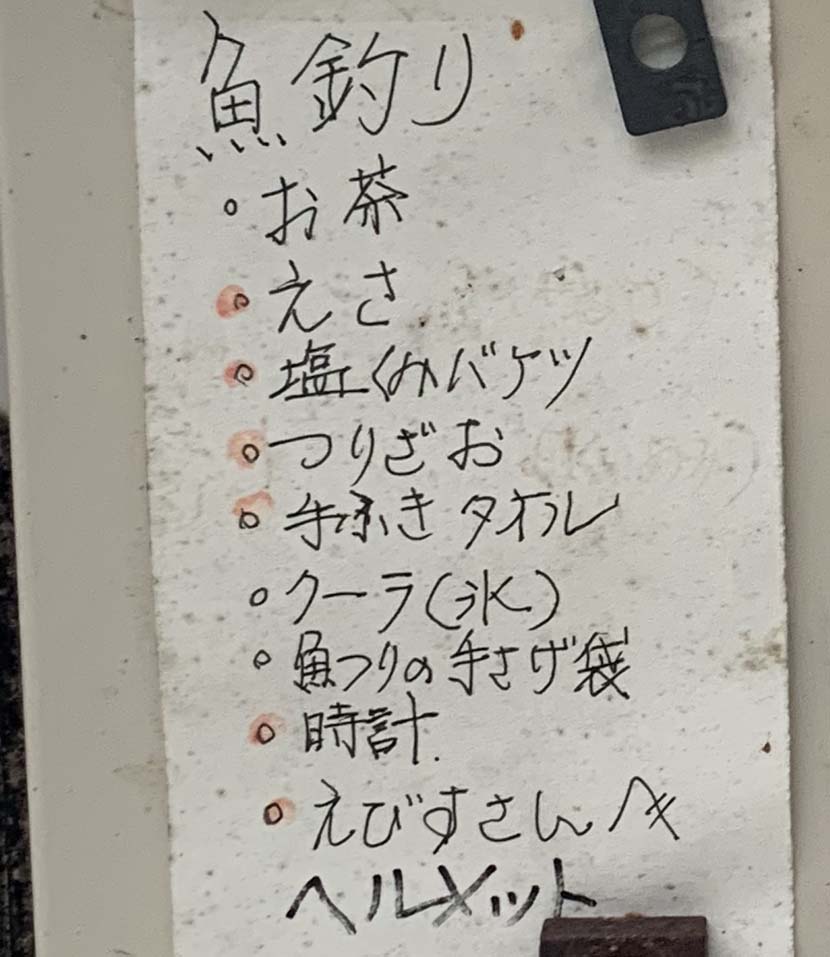 魚釣り
。お茶
。えさ
。塩くみバケツ
。つりざお
。手ふきタオル
。クーラ(氷)
。魚つりの手さげ袋
。時計.
。えびすさん
ヘルメット